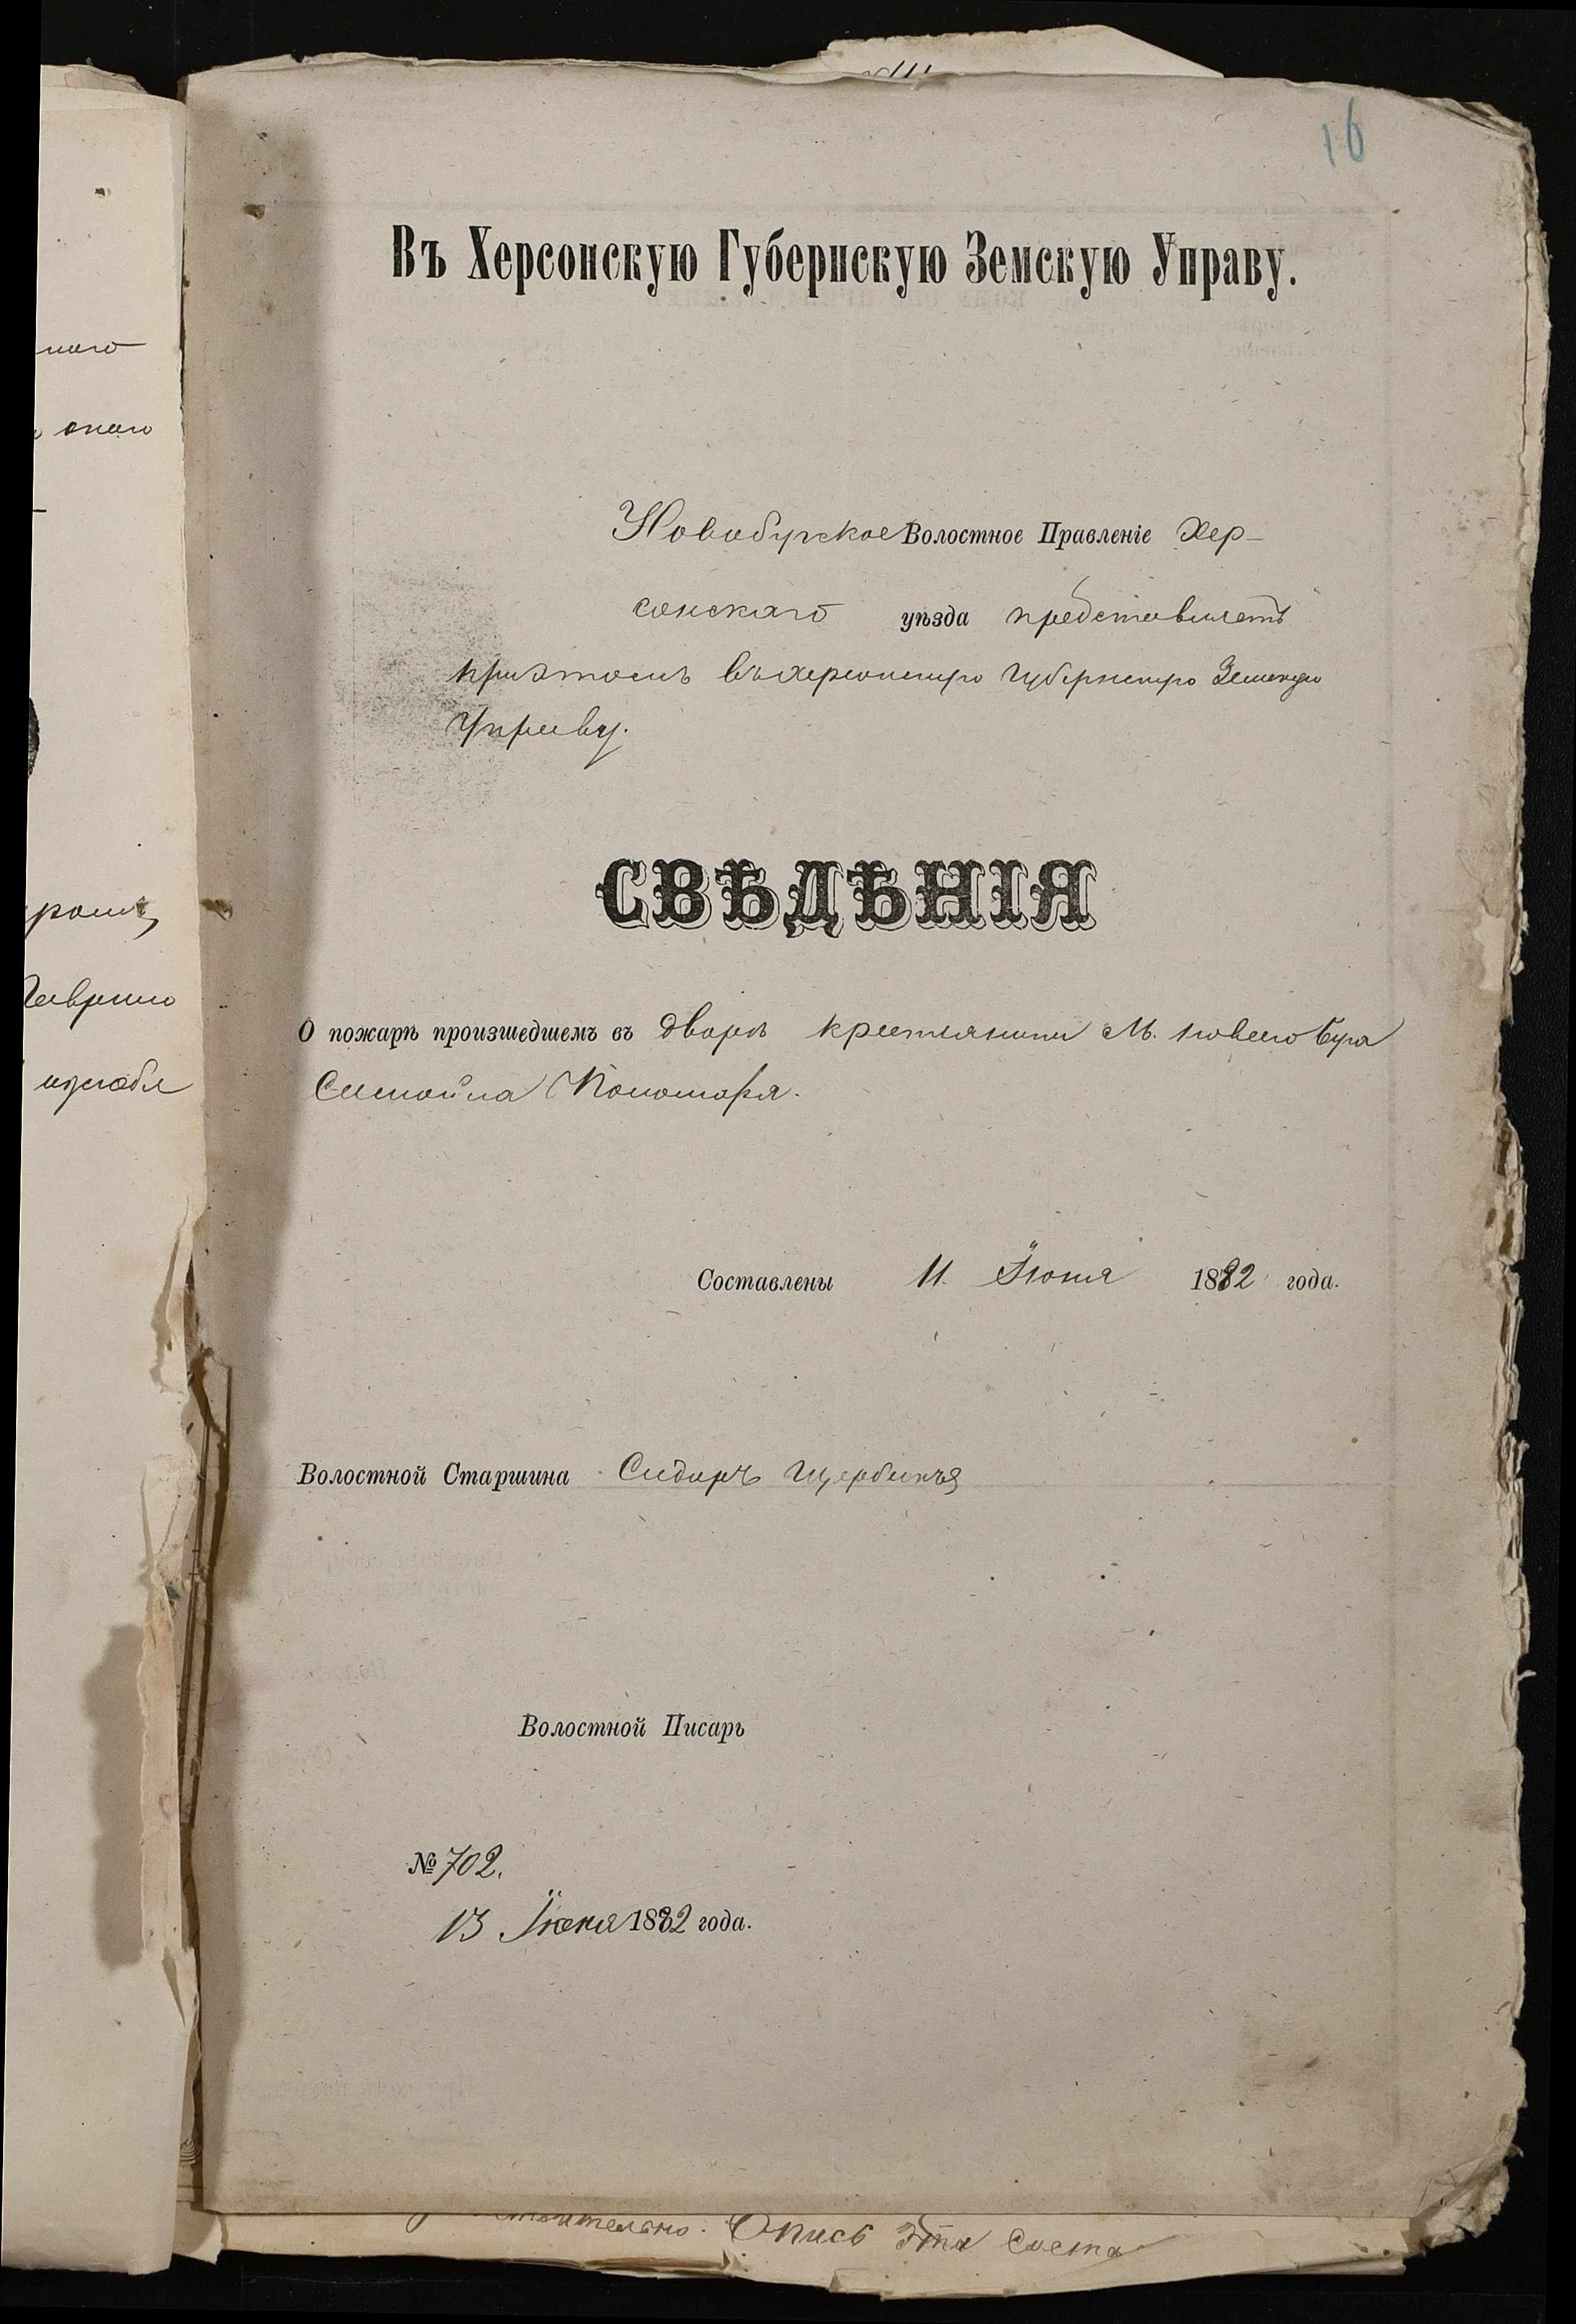 16
Въ Херсонскую Губернскую Земскую Управу.
Новобугское Волостное Правленіе Хер-
сонскаго уѣзда представляетъ
при этомъ въ херсонскую Губернскую Земскую
Управу.
СВѢДѢНІЯ
О пожарѣ произшедшемъ въ дворѣ крестянина М. новаго Буга
Самойла Пономаря.
Составлены 11 Іюня 1882 года.
Волостной Старшина Сидиръ Щербина
Волостной Писарь
№ 702.
13 Іюня 1882 года.
Опись эта соста